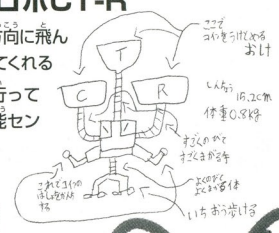 ロボCT-R
方向に飛ん
てくれる
行って
能セン
ここで
コインをうけとめる
おけ
T
C
R
しんちょう
15.2cm
体重0.8kg
すごくのびて
すごくまがる手
よくのびて
よくまがる体
いちおう歩ける
これでコインの
する